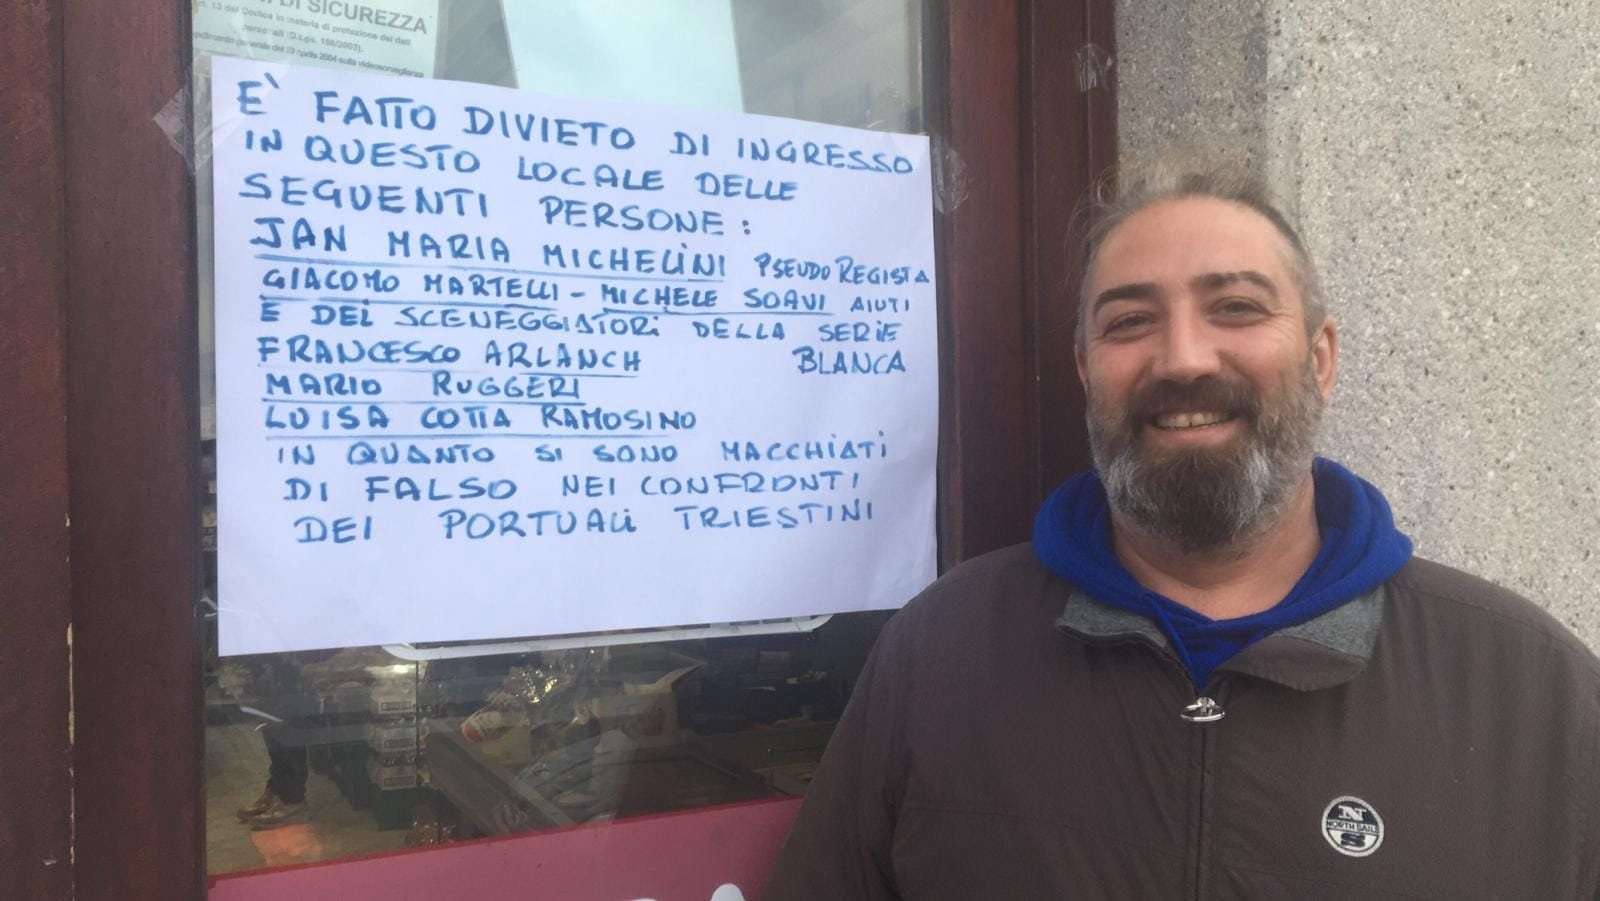 DI SICUREZZA
. 13 del Codice in materia di protezione dei dati
personali (D.Lgs. 196/2003).
generale del 29 aprile 2004 sulla videosorveglianza
E` FATTO DIVIETO DI INGRESSO
IN QUESTO LOCALE DELLE
SEGUENTI PERSONE:
JAN MARIA MICHELINI PSEUDO REGISTA
GIACOMO MARTELLI - MICHELE SOAVI AIUTI
E DEI SCENEGGIATORI DELLA SERIE
FRANCESCO ARLANCH BLANCA
MARIO RUGGERI
LUISA COTTA RAMOSINO
IN QUANTO SI SONO MACCHIATI
DI FALSO NEI CONFRONTI
DEI PORTUALI TRIESTINI
N
NORTH SAILS
S